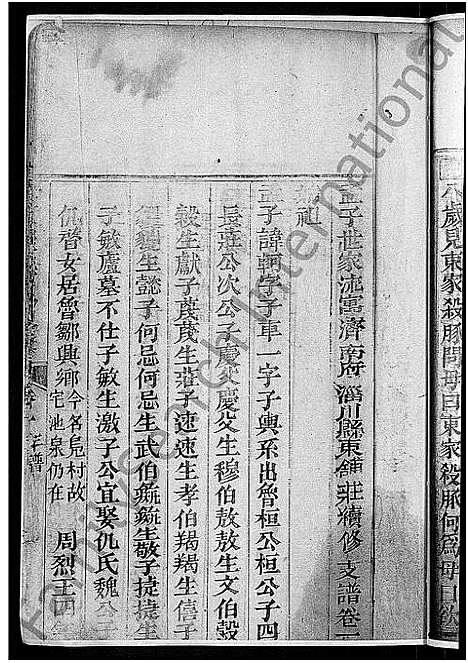 孟子世家流寓濟南府淄川縣東舖莊續修支譜卷一
始祖
孟子諱軻字子車一字子輿系出魯桓公桓公子四
長莊公次公子慶父慶父生穆伯敖敖生文伯穀
穀生獻子蔑蔑生莊子速速生孝伯羯羯生僖子
貜貜生懿子何忌何忌生武伯彘彘生敬子捷捷生
子敏廬墓不仕子敏生激子公宜娶仇氏魏公子
仉督女居魯鄒興鄉今名鳧村故宅池泉仍在 周烈王四年
卷一 譜
八歲見東家殺豚問母曰東家殺豚何為母曰欲
FamilySearch International